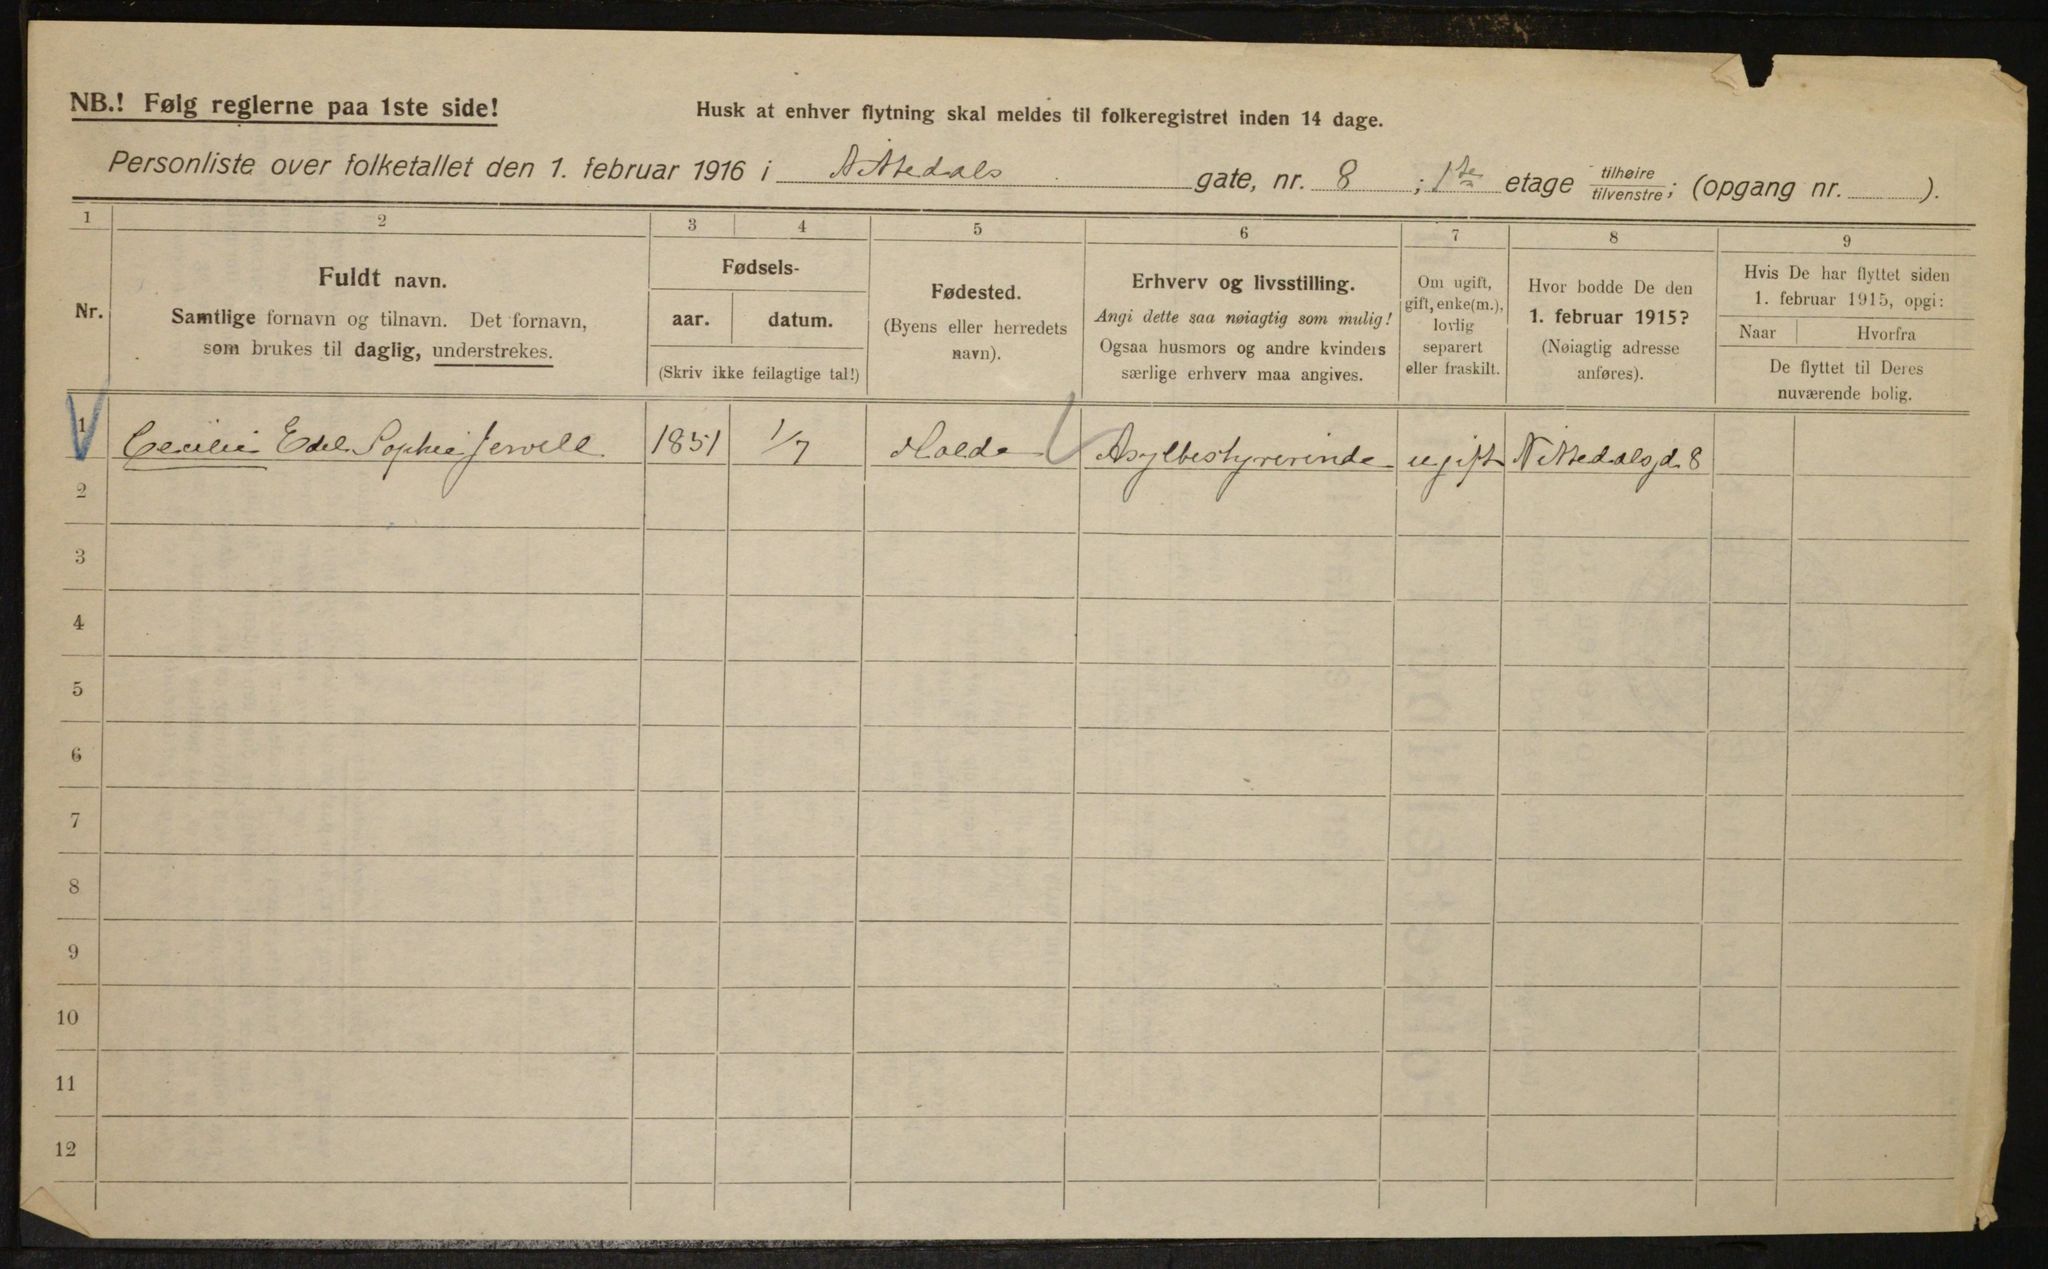 NB.! Følg reglerne paa 1ste side!
Husk at enhver flytning skal meldes til folkeregistret inden 14 dage.
Personliste over folketallet den 1. februar 1916 i Nittedals gate, nr. 8 ; 1ste etage tilhøire/tilvenstre; (opgang nr. ).
1 2 3 4 5 6 7 8 9
Nr.
Fuldt navn.
Samtlige fornavn og tilnavn. Det fornavn,
som brukes til daglig, understrekes.
Fødsels-
aar. datum.
(Skriv ikke feilagtige tal!)
Fødested.
(Byens eller herredets
navn).
Erhverv og livsstilling.
Angi dette saa nøiagtig som mulig!
Ogsaa husmors og andre kvinders
særlige erhverv maa angives.
Om ugift,
gift, enke(m.),
lovlig
separert
eller fraskilt.
Hvor bodde De den
1. februar 1915?
(Nøiagtig adresse
anføres).
Hvis De har flyttet siden
1. februar 1915, opgi:
Naar Hvorfra
De flyttet til Deres
nuværende bolig.
1 Cecilie Edel Sophie Jervell 1851 1/7 Molde Asylbestyrerinde ugift Nittedalsgd. 8
2
3
4
5
6
7
8
9
10
11
12